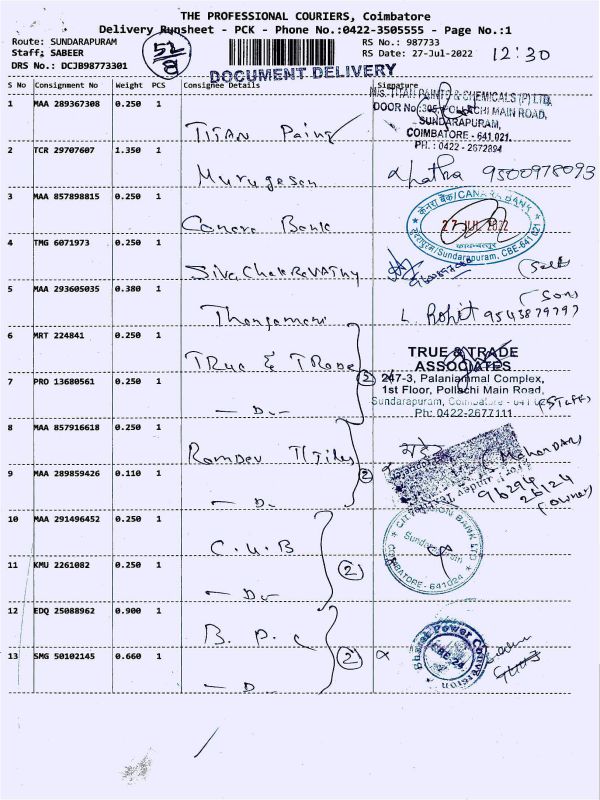 THE PROFESSIONAL COURIERS, Coimbatore
Delivery Runsheet - PCK - Phone No.:0422-3505555 - Page No.:1
Route: SUNDARAPURAM
Staff: SABEER
DRS No.: DCJB98773301
52/8
RS No.: 987733
RS Date: 27-Jul-2022
12:30
DOCUMENT DELIVERY
S No Consignment No Weight PCS Consignee Details Signature
1 MAA 289367308 0.250 1 TITAN Paint
M/s. TITAN PAINTS & CHEMICALS (P) LTD.
DOOR No.:305 POLLACHI MAIN ROAD,
SUNDARAPURAM,
COIMBATORE - 641 021.
PH. : 0422 - 2672894
2 TCR 29707607 1.350 1 Murugesan 9500978093
3 MAA 857898815 0.250 1 Canara Bank
केनरा बैंक/CANARA BANK
27 JUL 2022
कोयम्बत्तूर
Sundarapuram, CBE-641 021
4 TMG 6071973 0.250 1 (Self)
5 MAA 293605035 0.380 1 Thangamani L. Rohit 9543879797 (Son)
6 MRT 224841 0.250 1 True & Trade
7 PRO 13680561 0.250 1 — Do — 2
TRUE & TRADE
ASSOCIATES
247-3, Palaniammal Complex,
1st Floor, Pollachi Main Road,
Sundarapuram, Coimbatore - 641 024
Ph: 0422-2677111
(Staff)
8 MAA 857916618 0.250 1 Ramdev Tiles
9 MAA 289859426 0.110 1 — D — 2
96294
26124
(owner)
10 MAA 291496452 0.250 1 C.U.B
11 KMU 2261082 0.250 1 — Do — 2
CITY UNION BANK LTD
Sundarapuram
COIMBATORE - 641024
12 EDQ 25088962 0.900 1 B. P. C
13 SMG 50102145 0.660 1 — D — 2
Bharat Power Conversion